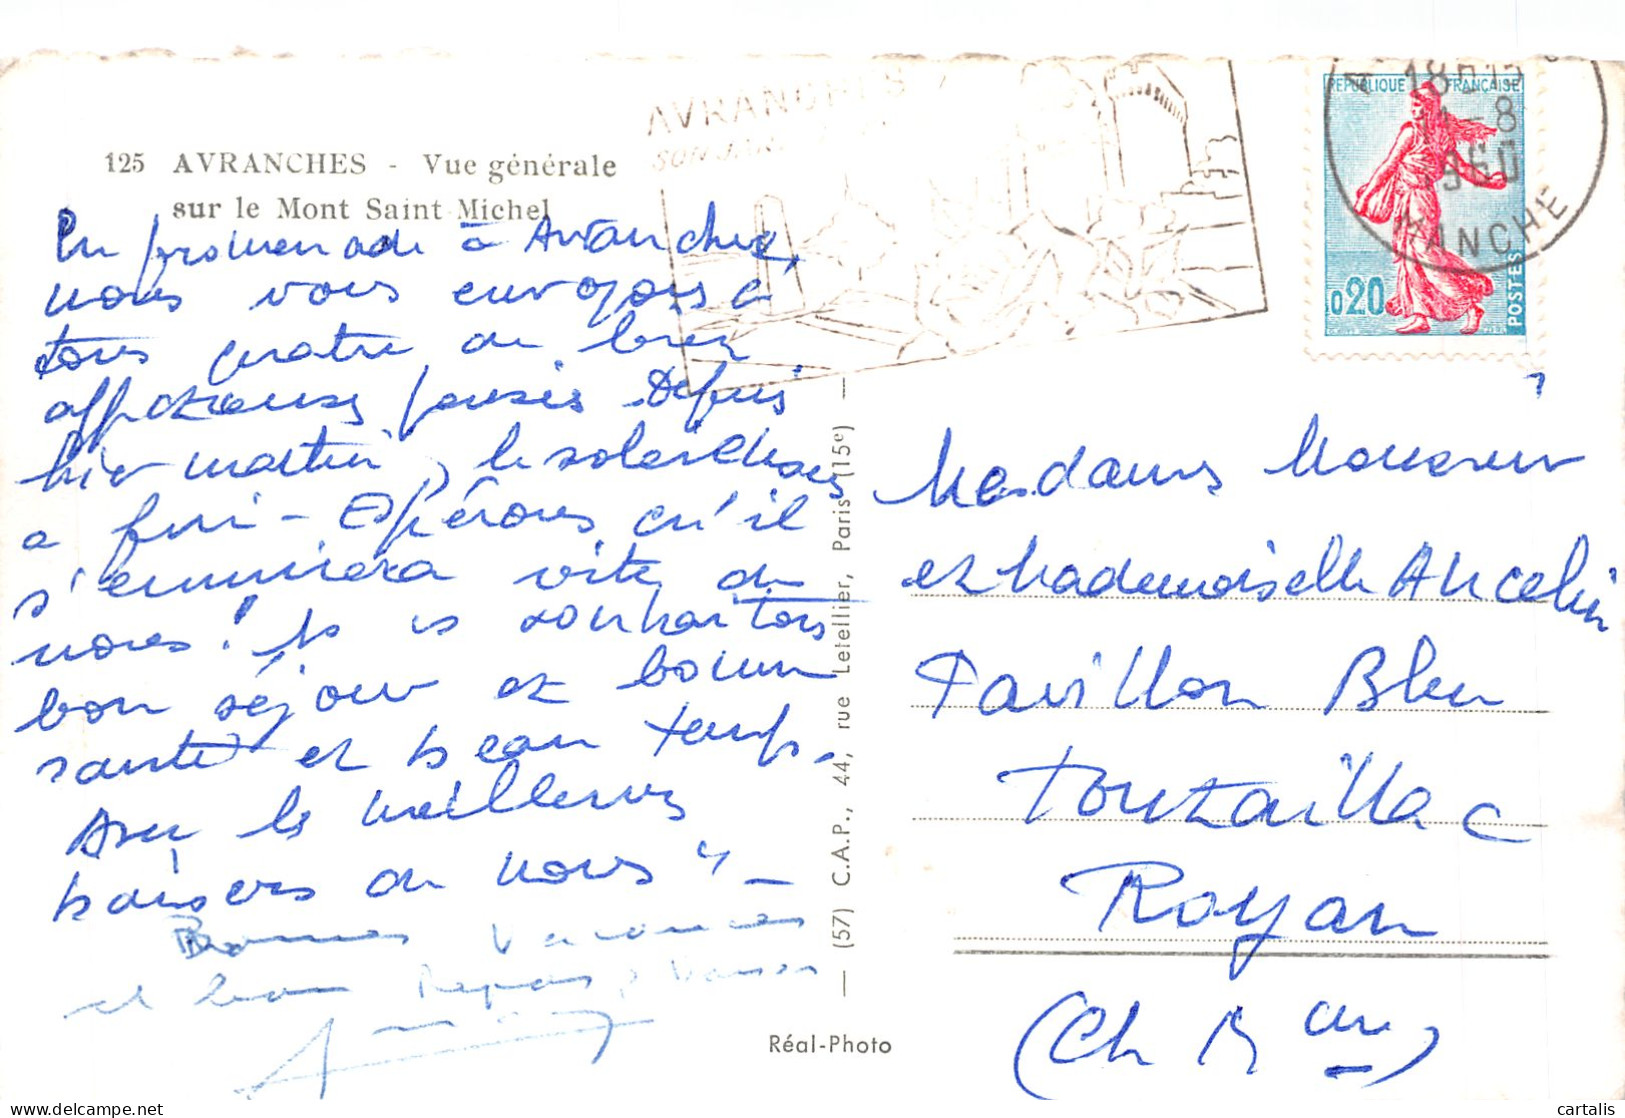 125 AVRANCHES - Vue générale
sur le Mont Saint Michel
En promenade à Avranches,
nous vous envoyons à
tous quatre de bien
affectueuses pensées. Depuis
hier matin, le soleil chez
a fini - Espérons qu'il
s'ennuiera vite de
nous! Je vs souhaitons
bon séjour et bonne
santé et beau temps.
Avec les meilleurs
baisers de nous
Bonnes Vacances
et bon Repos
AVRANCHES
SON JARDIN
18H15
-8
1960
MANCHE
REPUBLIQUE FRANÇAISE
0,20
POSTES
(57) C.A.P., 44, rue Letellier, Paris (15e)
Madame Monsieur
et Mademoiselle Ancelin
Pavillon Bleu
Pontaillac
Royan
(Ch Mme)
Réal-Photo
cartalis
delcampe.net